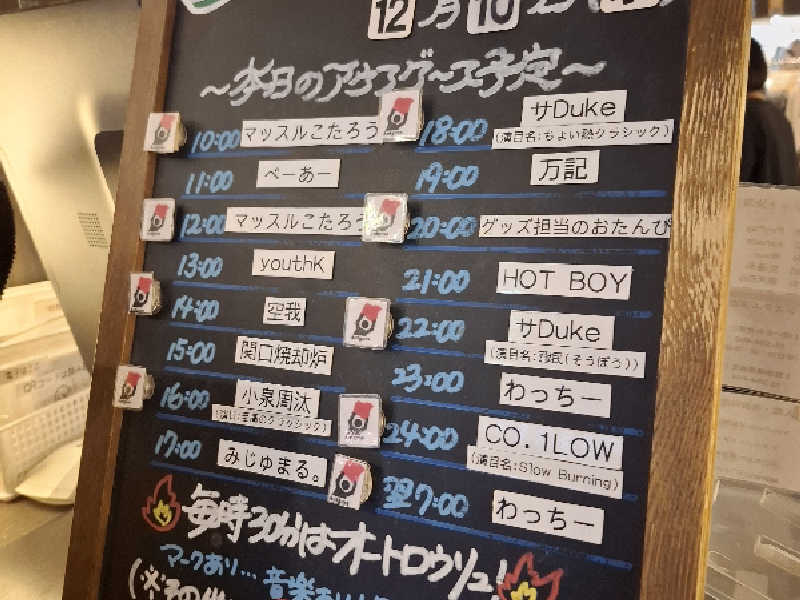 12月10日
～本日のアウフグース予定～
10:00 マッスルこたろう
11:00 べーあー
12:00 マッスルこたろう
13:00 youthK
14:00 空我
15:00 関口焼却炉
16:00 小泉周汰
17:00 みじゅまる。
18:00 サDuke
(演目名:ちょい熱クラシック)
19:00 万記
20:00 グッズ担当のおたんび
21:00 HOT BOY
22:00 サDuke
23:00 わっちー
24:00 CO.1LOW
(演目名:Slow Burning)
翌7:00 わっちー
毎時30分はオートロウリュ!
マークあり… 音楽
(※その